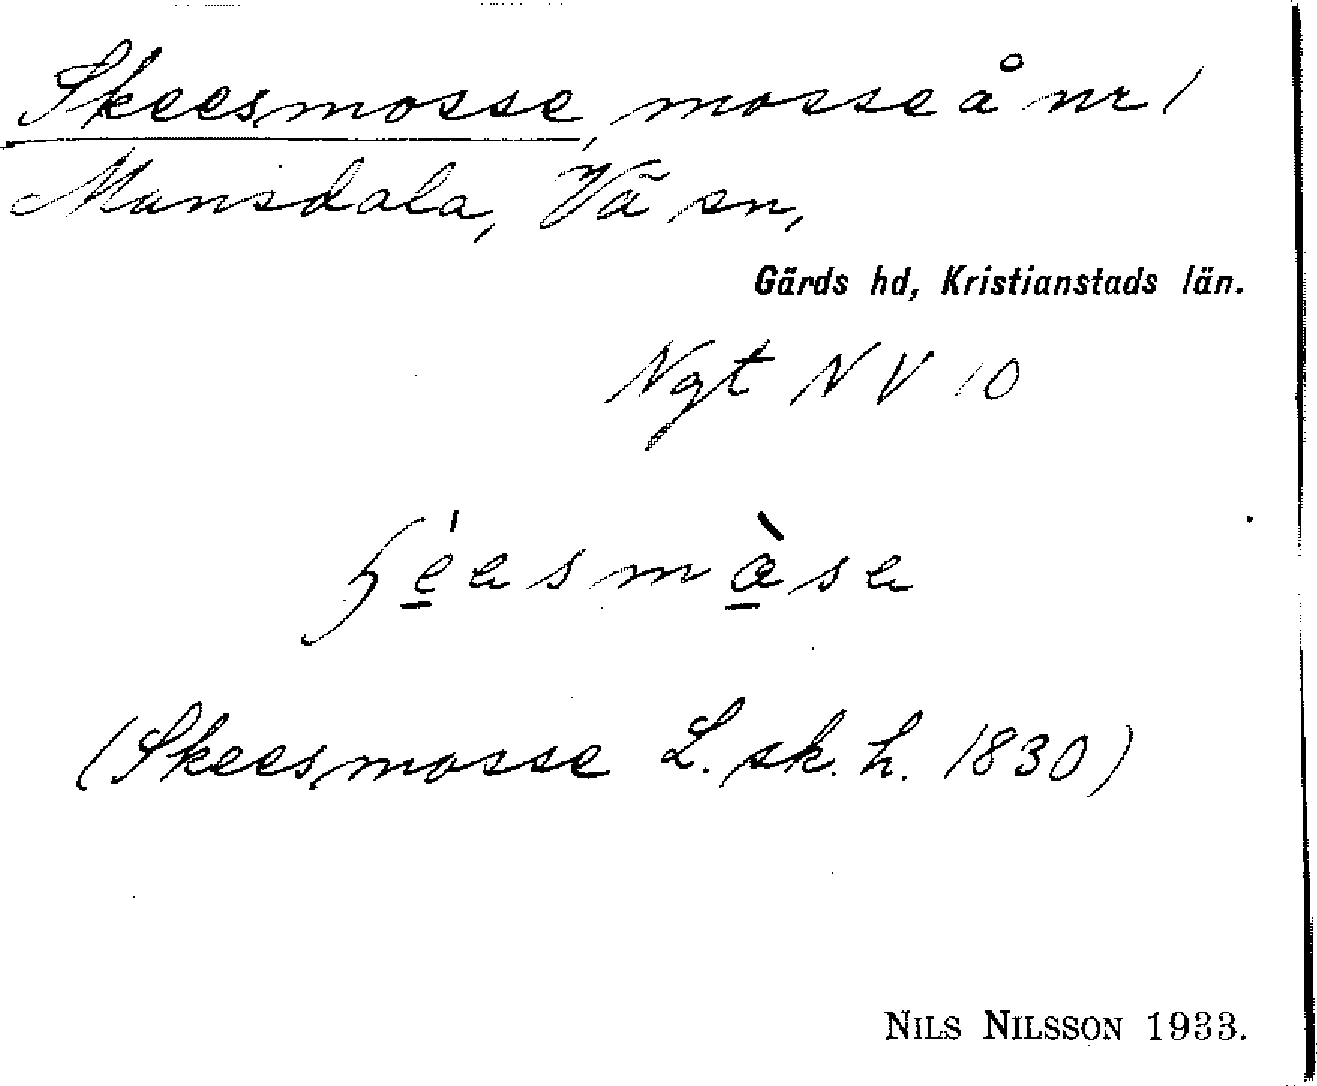 Skeesmosse, mosse å nr 1
Mansdala, Vä sn,
Gärds hd, Kristianstads län.
Ngt NV 10
(Skeesmosse L. sk. h. 1830)
NILS NILSSON 1933.